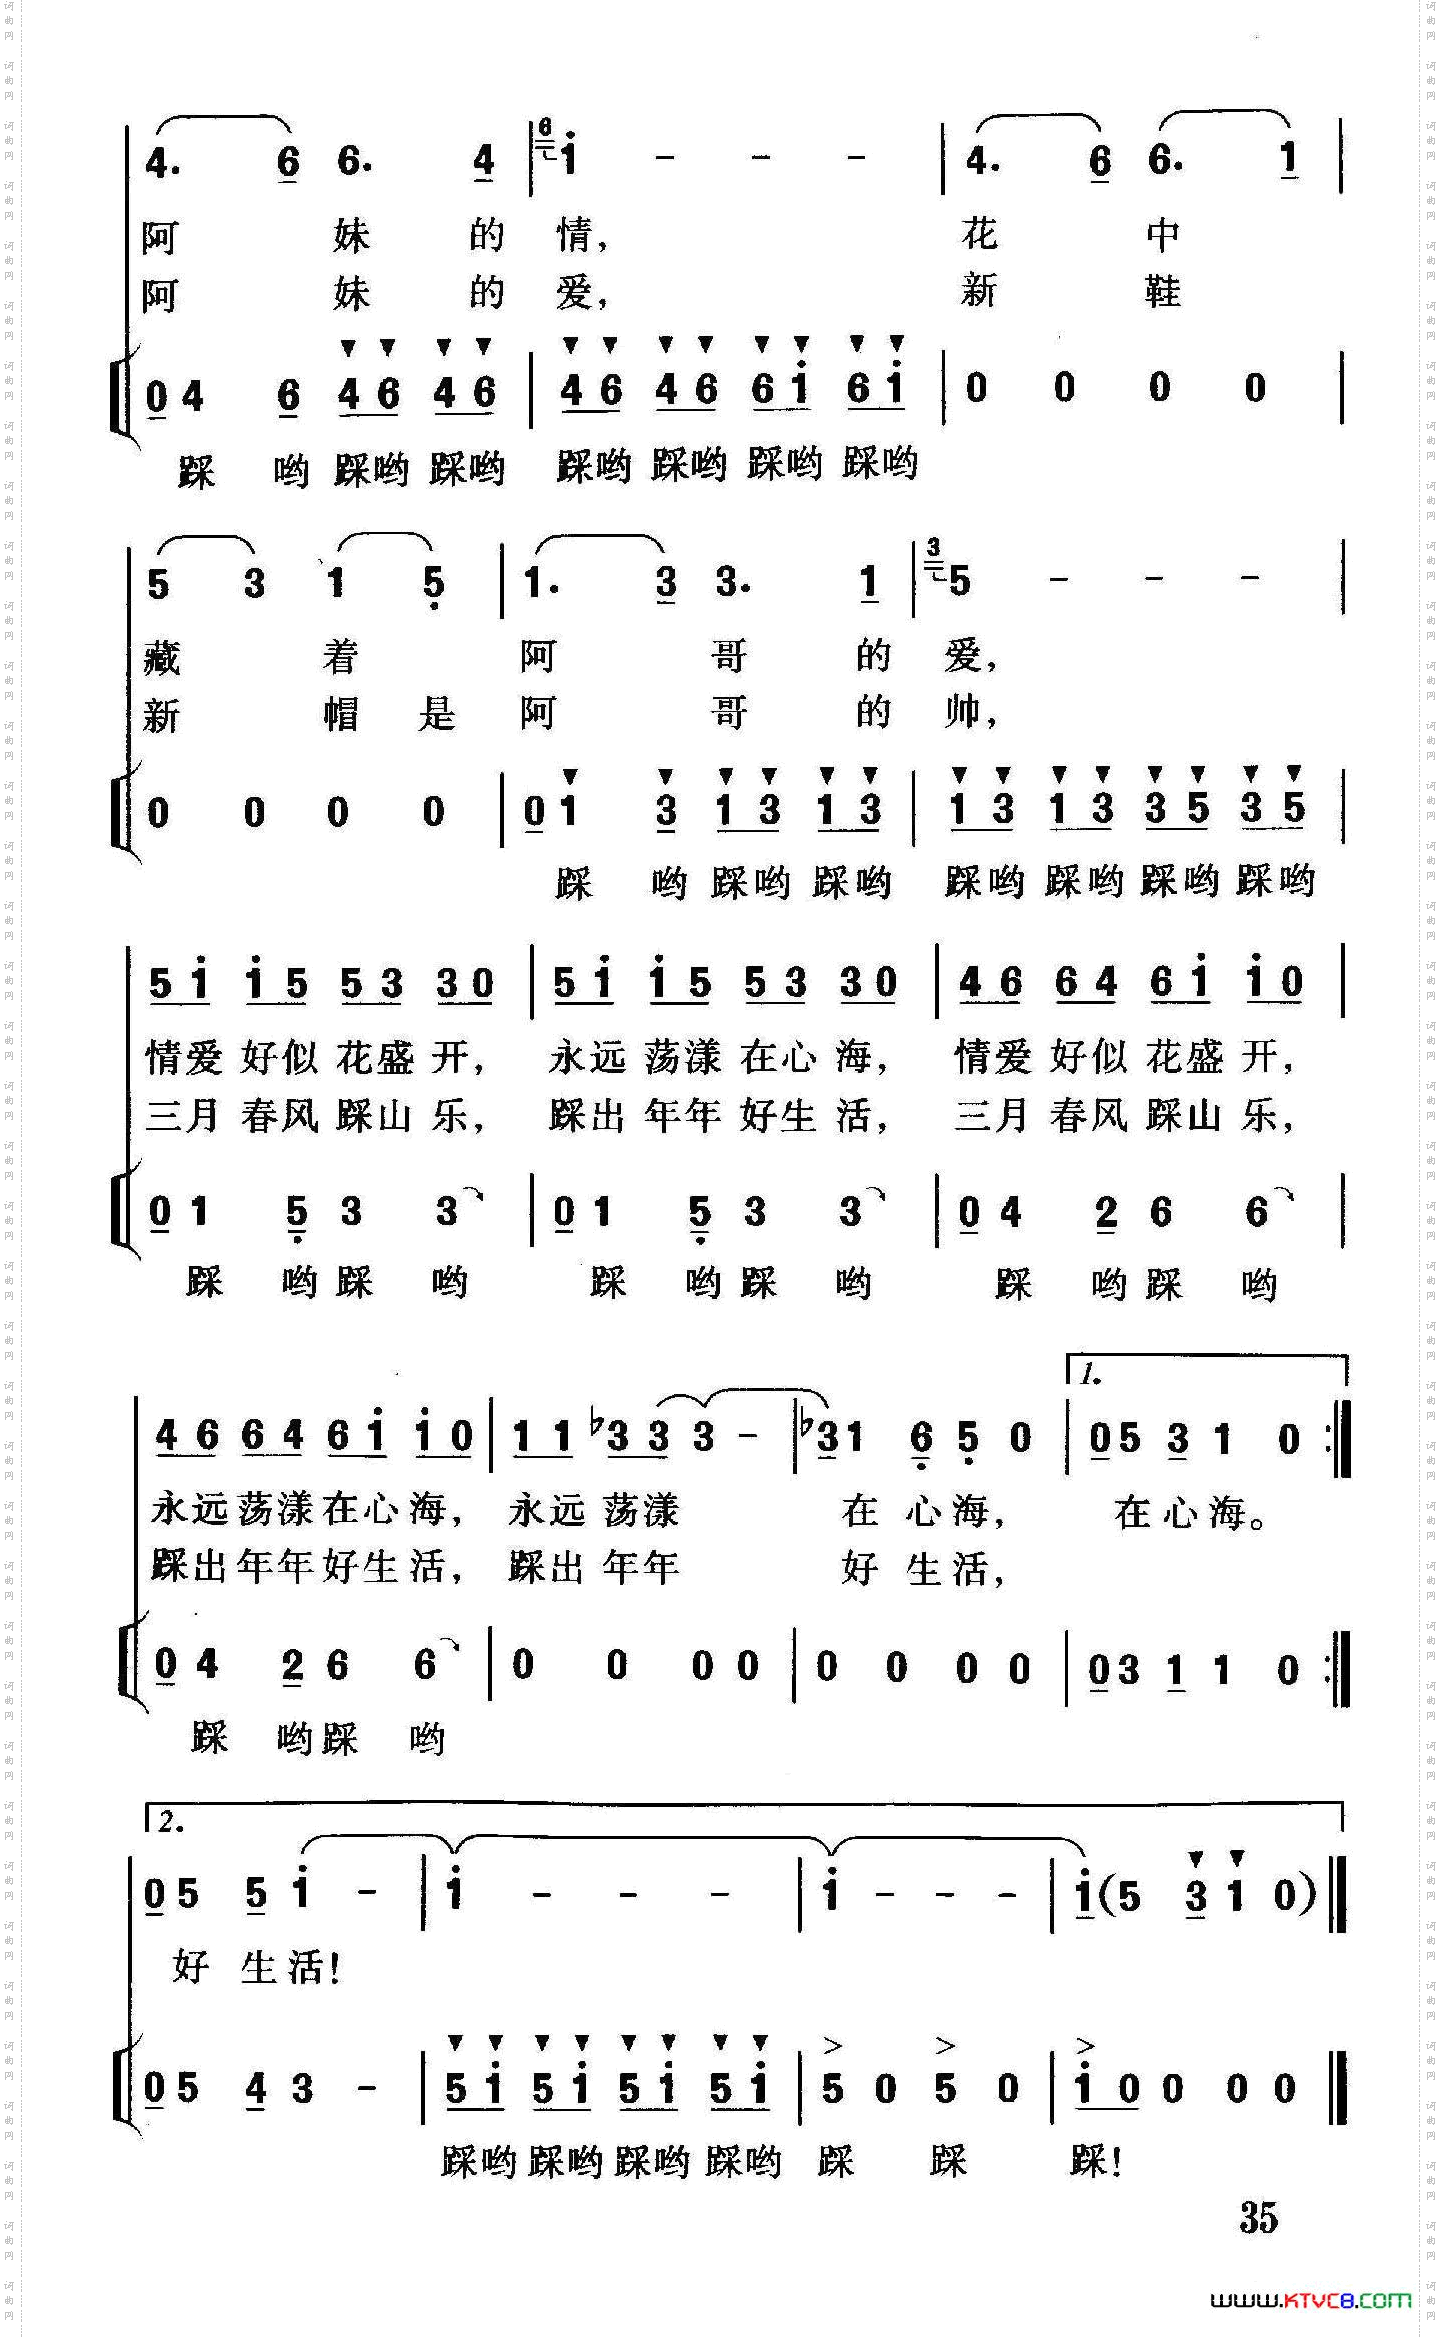 4. 6 6. 4 | 6 i - - - | 4. 6 6. 1 |
阿 妹 的 情, 花 中
阿 妹 的 爱, 新 鞋
0 4 6 4 6 4 6 | 4 6 4 6 6 i 6 i | 0 0 0 0 |
踩 哟 踩哟 踩哟 踩哟 踩哟 踩哟 踩哟
5 3 1 5 | 1. 3 3. 1 | 3 5 - - - |
藏 着 阿 哥 的 爱,
新 帽 是 阿 哥 的 帅,
0 0 0 0 | 0 1 3 1 3 1 3 | 1 3 1 3 3 5 3 5 |
踩 哟 踩哟 踩哟 踩哟 踩哟 踩哟 踩哟
5 i i 5 5 3 3 0 | 5 i i 5 5 3 3 0 | 4 6 6 4 6 i i 0 |
情爱 好似 花盛 开, 永远 荡漾 在心 海, 情爱 好似 花盛 开,
三月 春风 踩山 乐, 踩出 年年 好生 活, 三月 春风 踩山 乐,
0 1 5 3 3 | 0 1 5 3 3 | 0 4 2 6 6 |
踩 哟 踩 哟 踩 哟 踩 哟 踩 哟 踩 哟
1.
4 6 6 4 6 i i 0 | 1 1 ♭3 3 3 - | ♭3 1 6 5 0 | 0 5 3 1 0 :|
永远 荡漾 在心 海, 永远 荡漾 在 心 海, 在 心 海。
踩出 年年 好生 活, 踩出 年年 好 生 活,
0 4 2 6 6 | 0 0 0 0 | 0 0 0 0 | 0 3 1 1 0 :|
踩 哟 踩 哟
2.
0 5 5 i - | i - - - | i - - - | i (5 3 1 0) ‖
好 生 活!
0 5 4 3 - | 5 i 5 i 5 i 5 i | 5 0 5 0 | i 0 0 0 0 ‖
踩哟 踩哟 踩哟 踩哟 踩 踩 踩!
35
www.KTVC8.COM